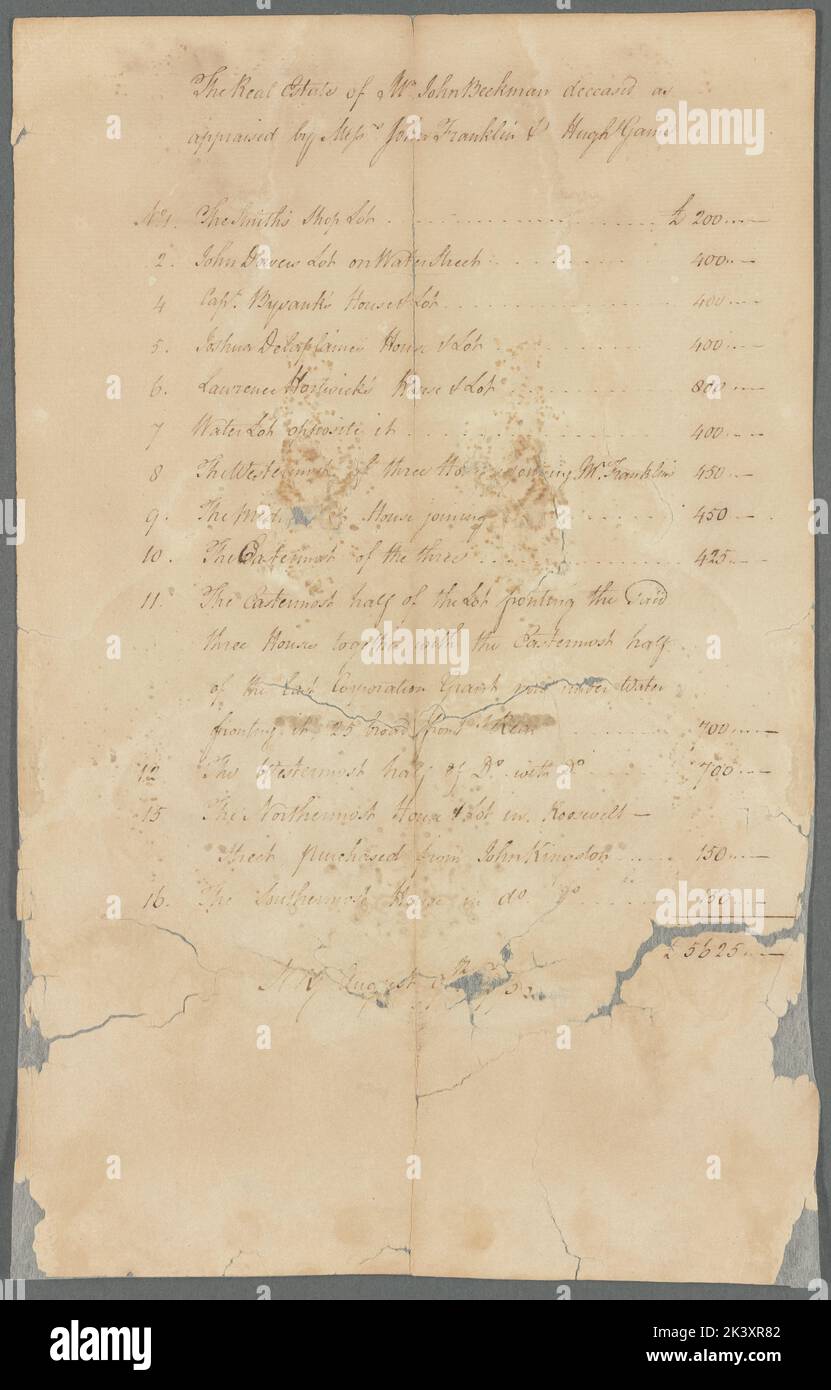 The Real Estate of Mr John Beekman deceased as
appraised by Messrs John Franklin & Hugh Gaine
No 1. The Smith's Shop Lot £ 200
2. John Davers Lot on Water Street 400
4 Capt. Byvank's House & Lot 400
5. Joshua Delaplaines House & Lot 400
6. Lawrence House & Lot 800
7 Water Lot opposite it 400
8 The Westermost of three joining Mr. Franklin's 450
9. The House joining 450
10. The Eastermost of the three 425
11. The Eastermost half of the Lot fronting the said
three Houses together with the Eastermost half
of the last Corporation Grant now under Water
fronting it, 25 broad front & Rear 700
12 The Westermost half of Do. with do 700
15 The Northermost House & Lot in Roosevelt
Street purchased from John Kingston 150
16. The Southermost House in do. do 150
£ 5625
N York August
alamy
Image ID: 2K3XR82
www.alamy.com